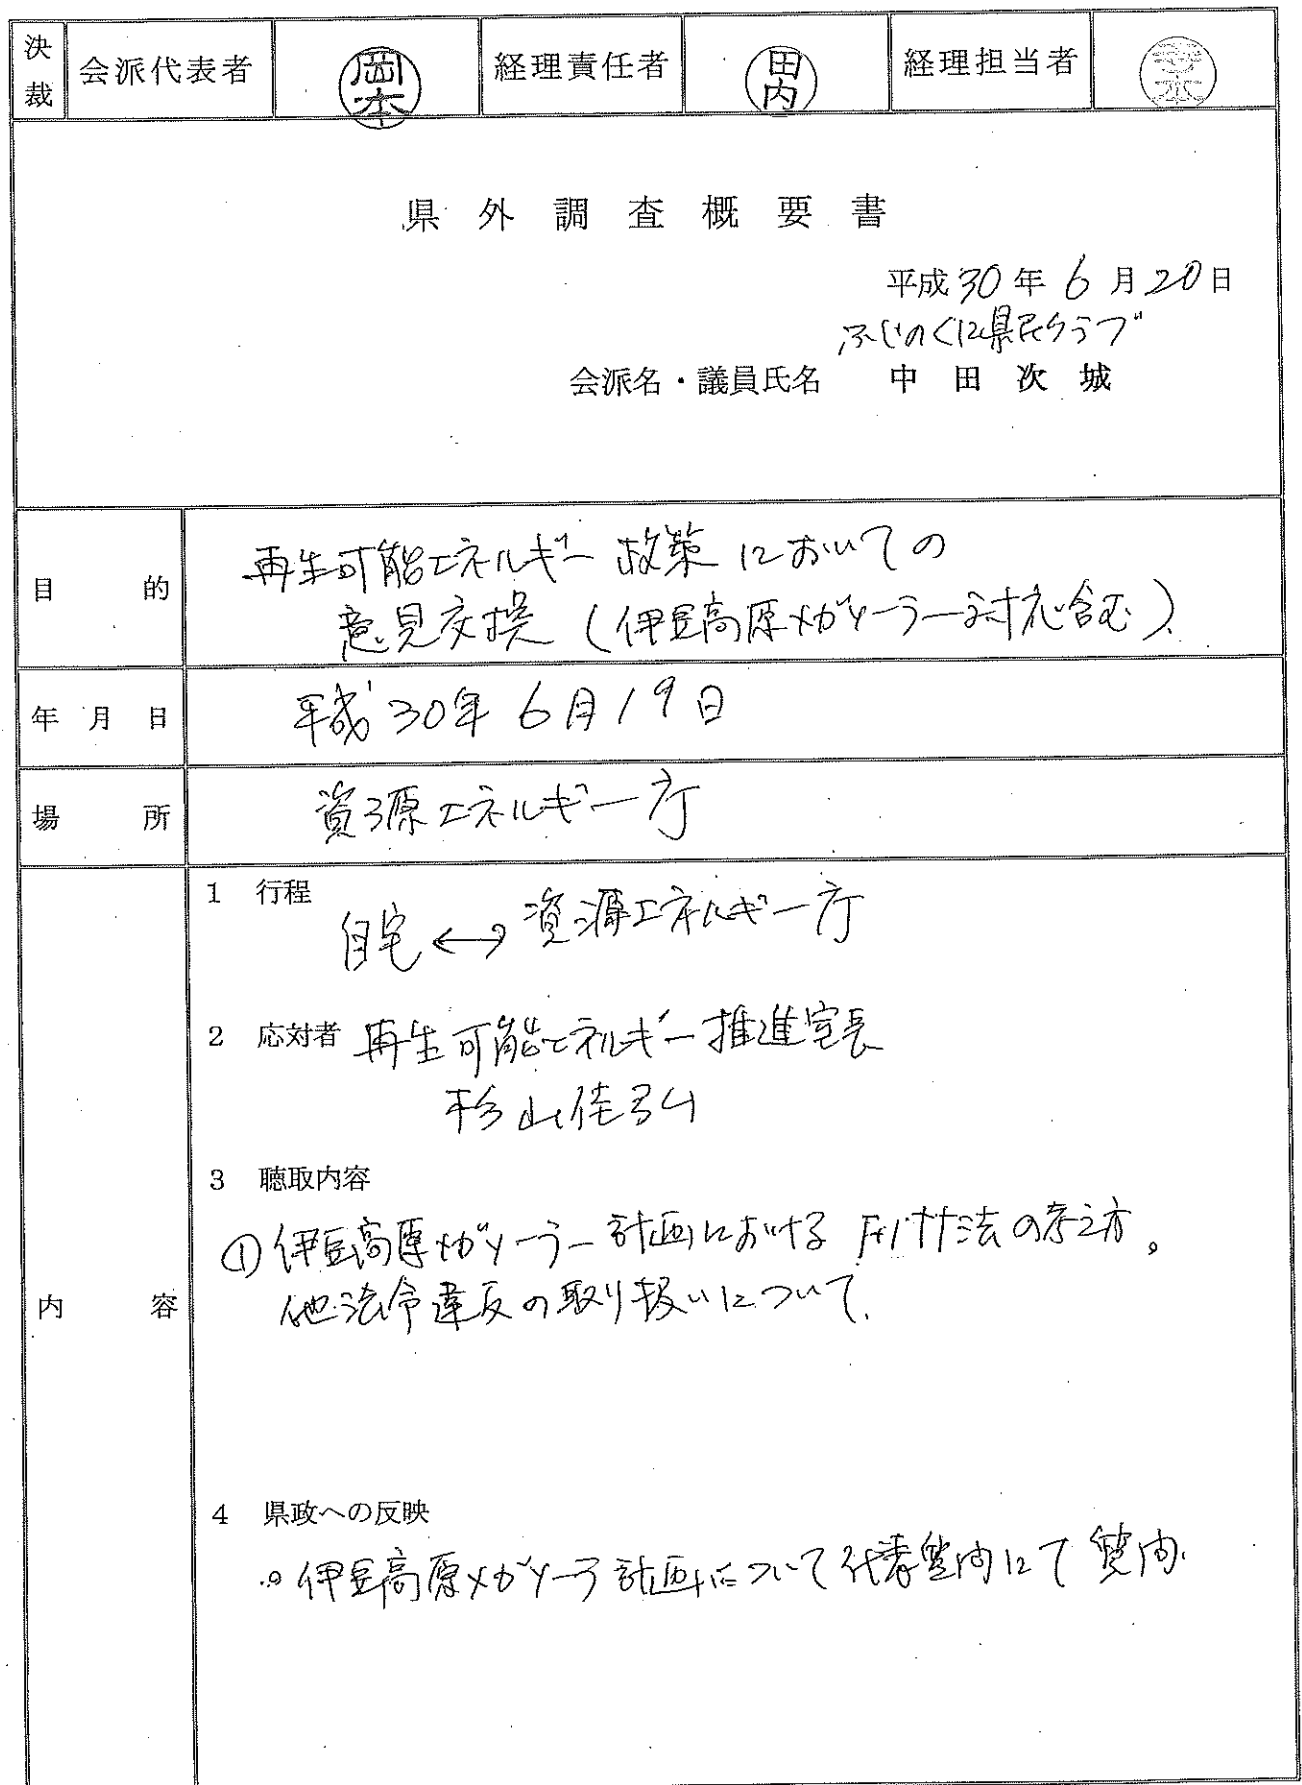 決裁 会派代表者 岡本 経理責任者 田内 経理担当者
県外調査概要書
平成30年6月20日
ふじのくに県民クラブ
会派名・議員氏名 中田次城
目的 再生可能エネルギー政策においての
意見交換(伊豆高原メガソーラー対応含む)
年月日 平成30年6月19日
場所 資源エネルギー庁
内容
1 行程
自宅 ↔ 資源エネルギー庁
2 応対者 再生可能エネルギー推進室長
杉山佳弘
3 聴取内容
① 伊豆高原メガソーラー計画における 法の考え方。
他法令違反の取り扱いについて.
4 県政への反映
伊豆高原メガソーラ計画について代表質問にて質問.